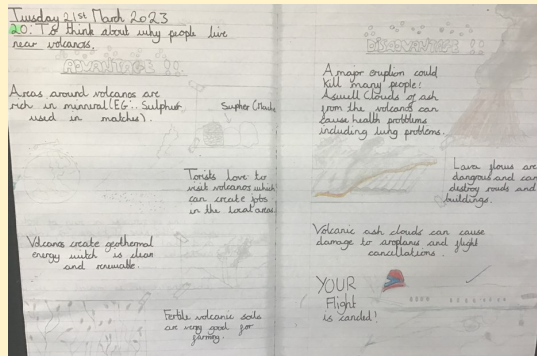 Tuesday 21st March 2023
LO: To think about why people live
near volcanos.
ADVANTAGE !!
Areas around volcanos are
rich in minneral (EG:. Sulpher
used in matches).
Supher
Torists love to
visit volcanos which
can create jobs
in the local areas.
Volcanos create geothermal
energy witch is clean
and renewable.
Fertile volcanic soils
are very good for
farming.
DISADVANTAGE !!
A major eruption could
Kill many people!
Aswell Clouds of ash
from the volcanos can
cause health probtlms
including lung problems.
Lava flows are
dangrous and can
destroy roads and
buildings.
Volcanic ash clouds can cause
damage to aroplanes and flight
cancellations.
YOUR
Flight
is canded!